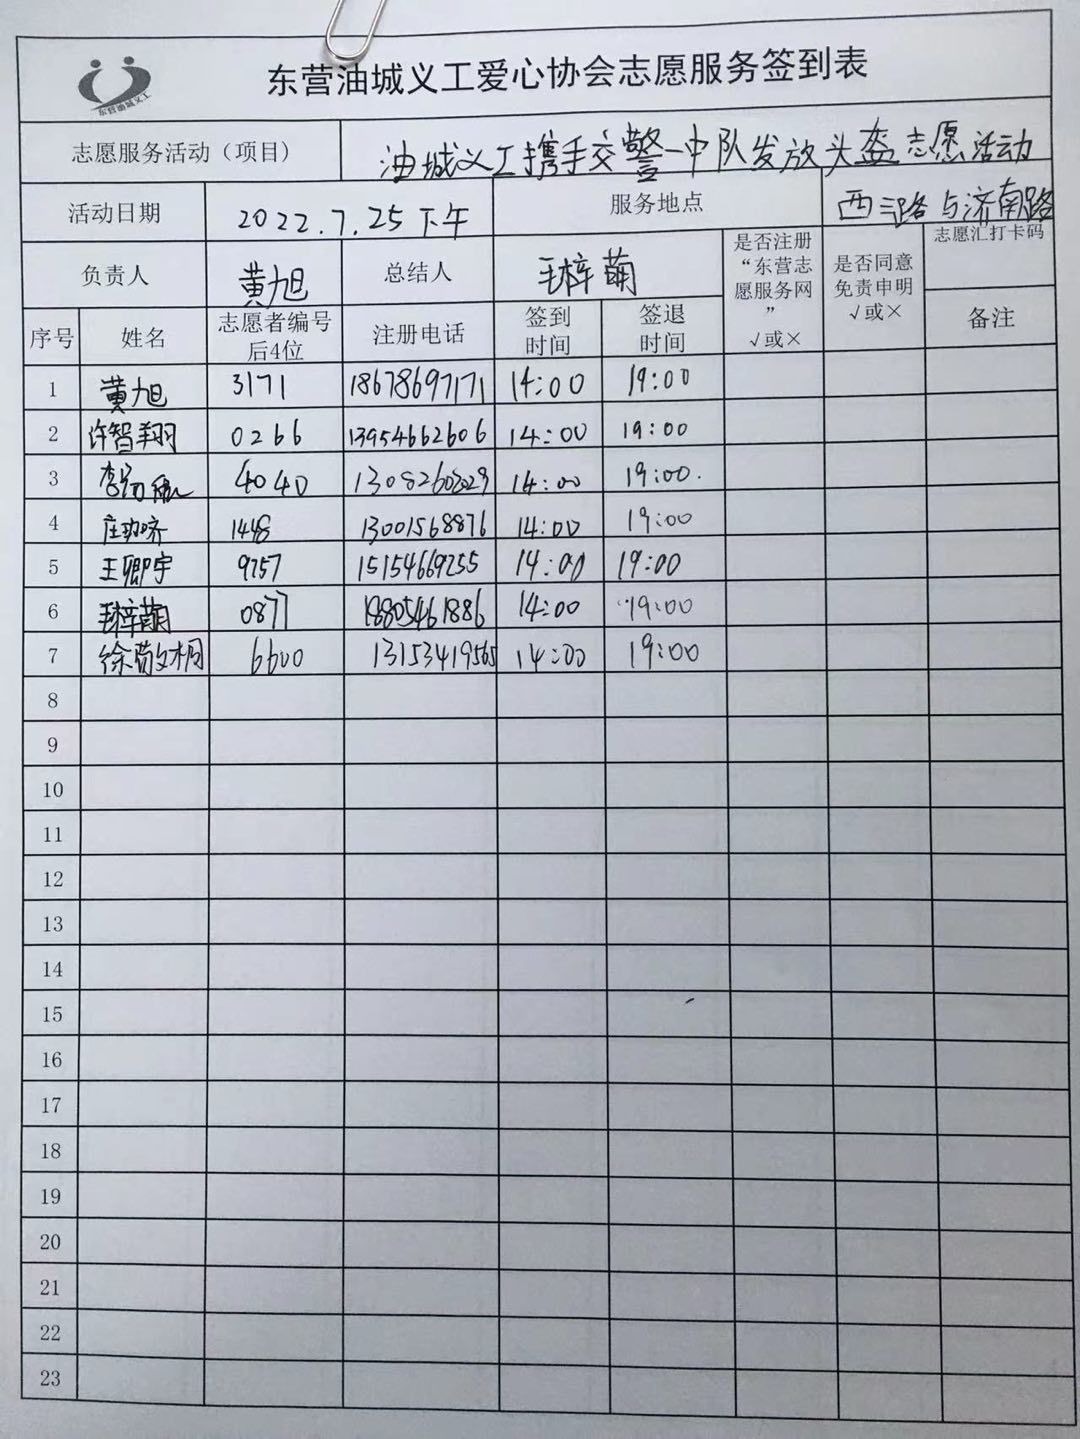 东营油城义工
东营油城义工爱心协会志愿服务签到表
志愿服务活动（项目） 油城义工携手交警一中队发放头盔志愿活动
活动日期 2022.7.25下午 服务地点 西三路与济南路
负责人 黄旭 总结人 毛梓萌 是否注册“东营志愿服务网”√或× 是否同意免责申明√或× 志愿汇打卡码
序号 姓名 志愿者编号后4位 注册电话 签到时间 签退时间 备注
1 黄旭 3171 18678697171 14:00 19:00
2 许智翔 0266 13954662606 14:00 19:00
3 李 4040 14:00 19:00.
4 庄 1448 13001568876 14:00 19:00
5 王卿宇 9257 15154669255 14:00 19:00
6 毛梓萌 0877 18805461886 14:00 19:00
7 徐 6600 13153419565 14:00 19:00
8
9
10
11
12
13
14
15
16
17
18
19
20
21
22
23